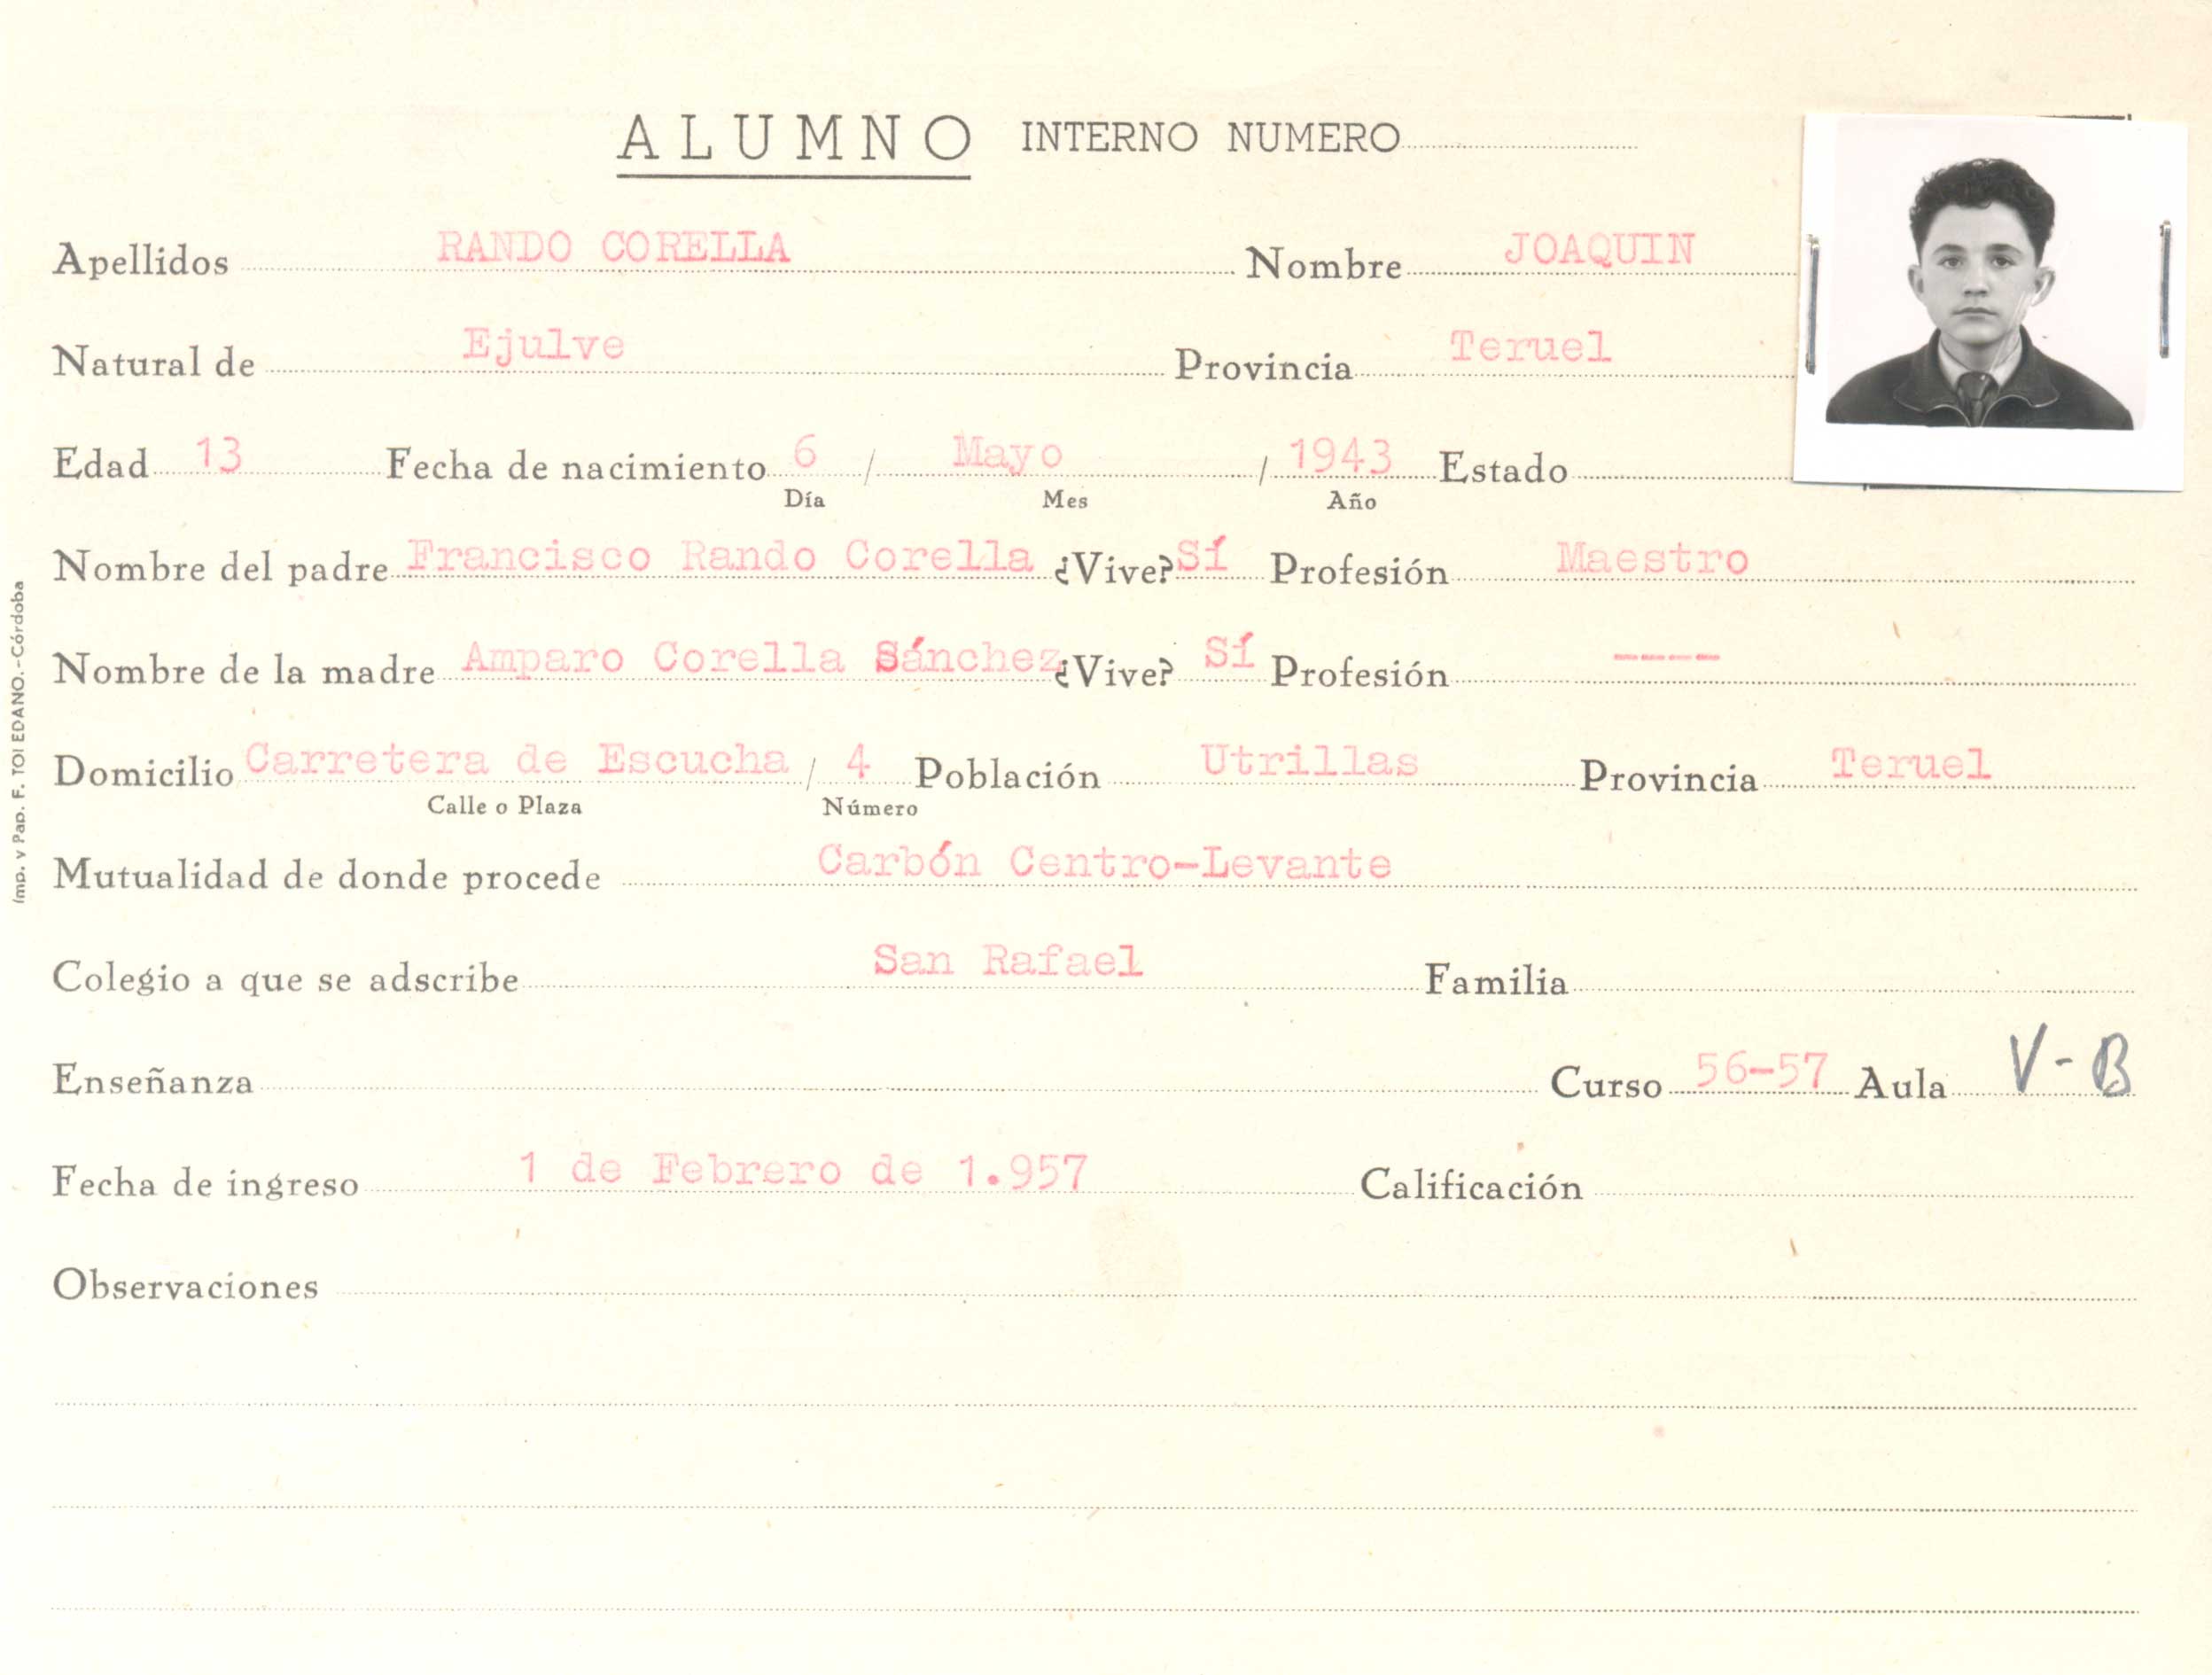 ALUMNO INTERNO NUMERO
Apellidos RANDO CORELLA Nombre JOAQUIN
Natural de Ejulve Provincia Teruel
Edad 13 Fecha de nacimiento 6 / Mayo / 1943 Estado
Día Mes Año
Nombre del padre Francisco Rando Corella ¿Vive? Sí Profesión Maestro
Nombre de la madre Amparo Corella Sánchez ¿Vive? Sí Profesión ----
Domicilio Carretera de Escucha / 4 Población Utrillas Provincia Teruel
Calle o Plaza Número
Mutualidad de donde procede Carbón Centro-Levante
Colegio a que se adscribe San Rafael Familia
Enseñanza Curso 56-57 Aula V-B
Fecha de ingreso 1 de Febrero de 1.957 Calificación
Observaciones
Imp. y Pap. F. TOLEDANO.-Córdoba